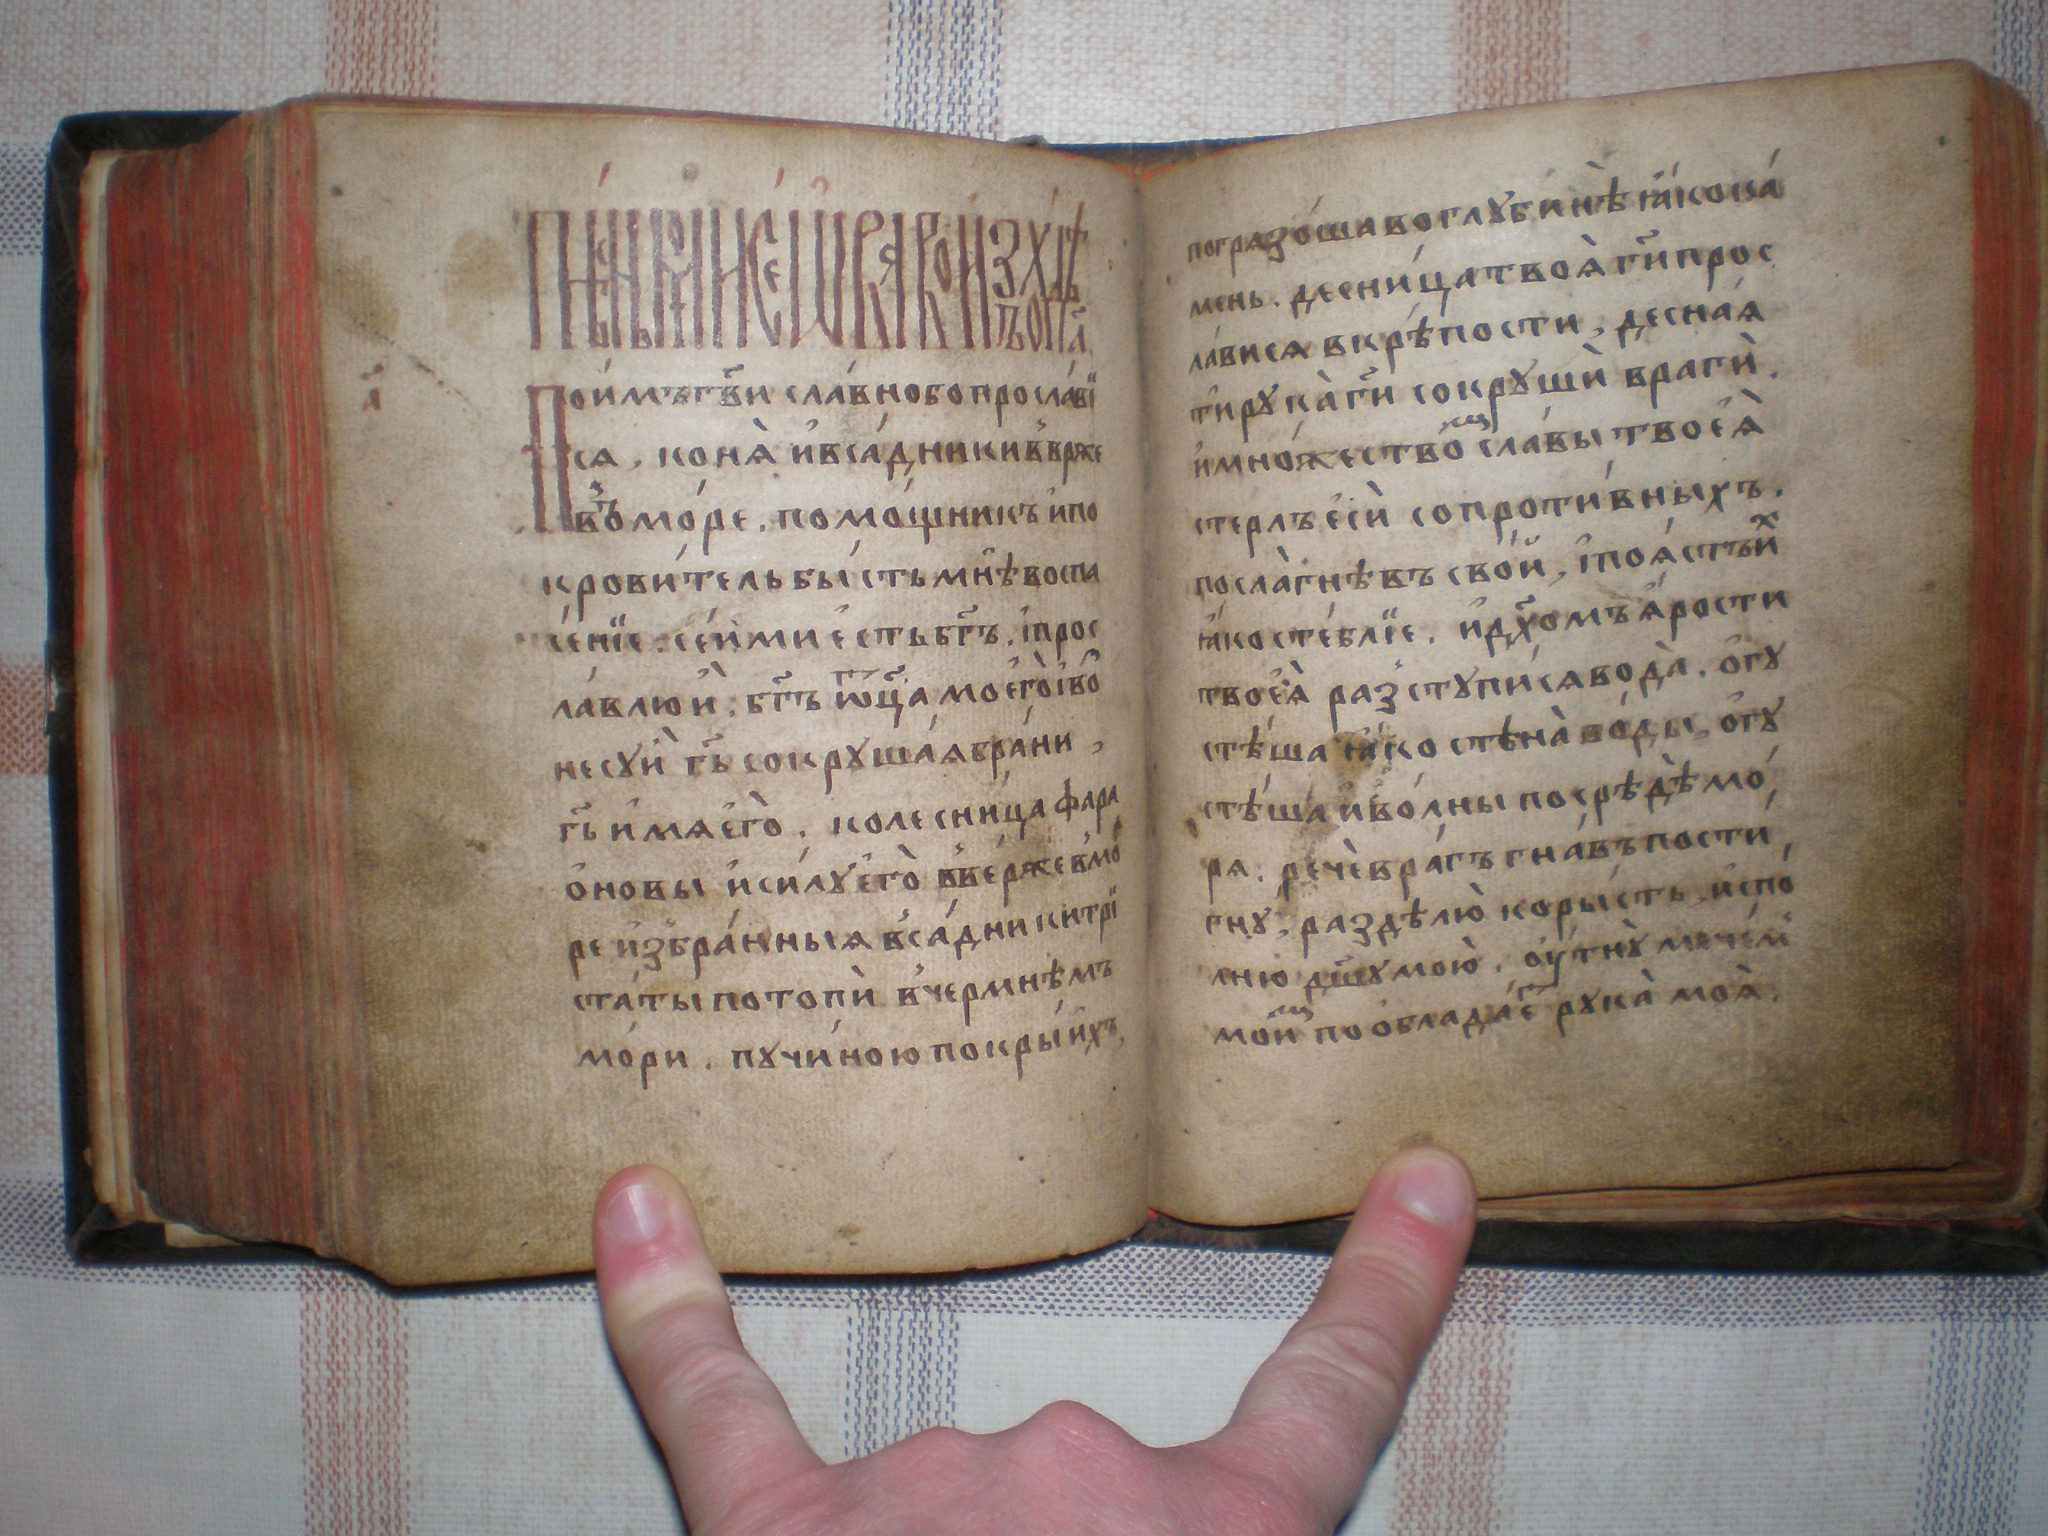 а҃
Пои́мъ гв҃и сла́вно бо просла́вї
ся, коня̀ и҆ вса́дники в҆верже
в҆ мо́ре, помо́щникъ и҆ по
крови́тель бы́сть мнѣ̀ во спа
се́нїе. се́й ми е҆сть бг҃ъ, і҆ прос
ла́влю и҆̀, бг҃ъ ѿц҃а моего̀ і҆ во
несу́ и҆̀ гь҃ сокруша́я бра́ни,
гь҃ и҆мя е҆го̀, колесни́ца фара
о́новы и҆ си́лу е҆го̀ в҆ве́рже в҆ мо́
ре и҆збра́нныя в҆са́дники трї
ста́ты потопѝ в҆ чермнѣ́мъ
мо́ри, пучи́ною покры́ и҆хъ,
погразо́ша во глубинѣ̀ ꙗ҆́ко ка́
мень, десни́ца твоя̀ гн҃и прос
ла́вися в крѣ́пости, десна́я
ти рука̀ гн҃и сокрушѝ врагѝ,
и҆ мно́жество́м сла́вы твоея̀
стерлъ е҆сѝ сопроти́вныхъ,
посла̀ гнѣ́въ сво́й, і҆ поя́стъ и҆̀х
ꙗ҆́ко сте́блїе, и҆ дх҃омъ я҆́рости
твоея̀ разступи́ся вода̀, о҆гу
стѣ́ша ꙗ҆́ко стѣна̀ во́ды, о҆гу
стѣ́ша и҆ во́лны посрѣдѣ̀ мо́
ря, речѐ вра́гъ гна́въ пости́
гну̀, раздѣлю̀ коры́сть, и҆спо́
лню дш҃у мою̀, оу҆тну̀ мече́м
мои́м по о҆блада́ет рука̀ моя̀,